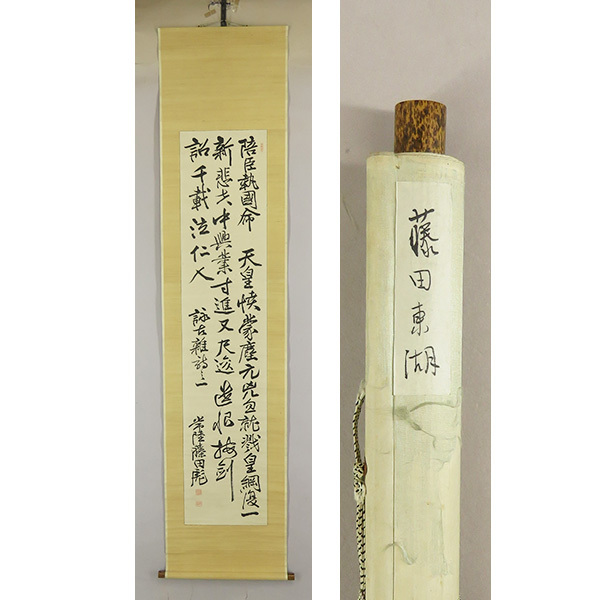 陪臣執國命 天皇快蒙塵元兇忽就戮皇綱復一
新悲夫中興業寸進又尺
遺恨按劍
詔千載泣仁人
詠古雜詩之一
常陸藤田彪
藤田東湖